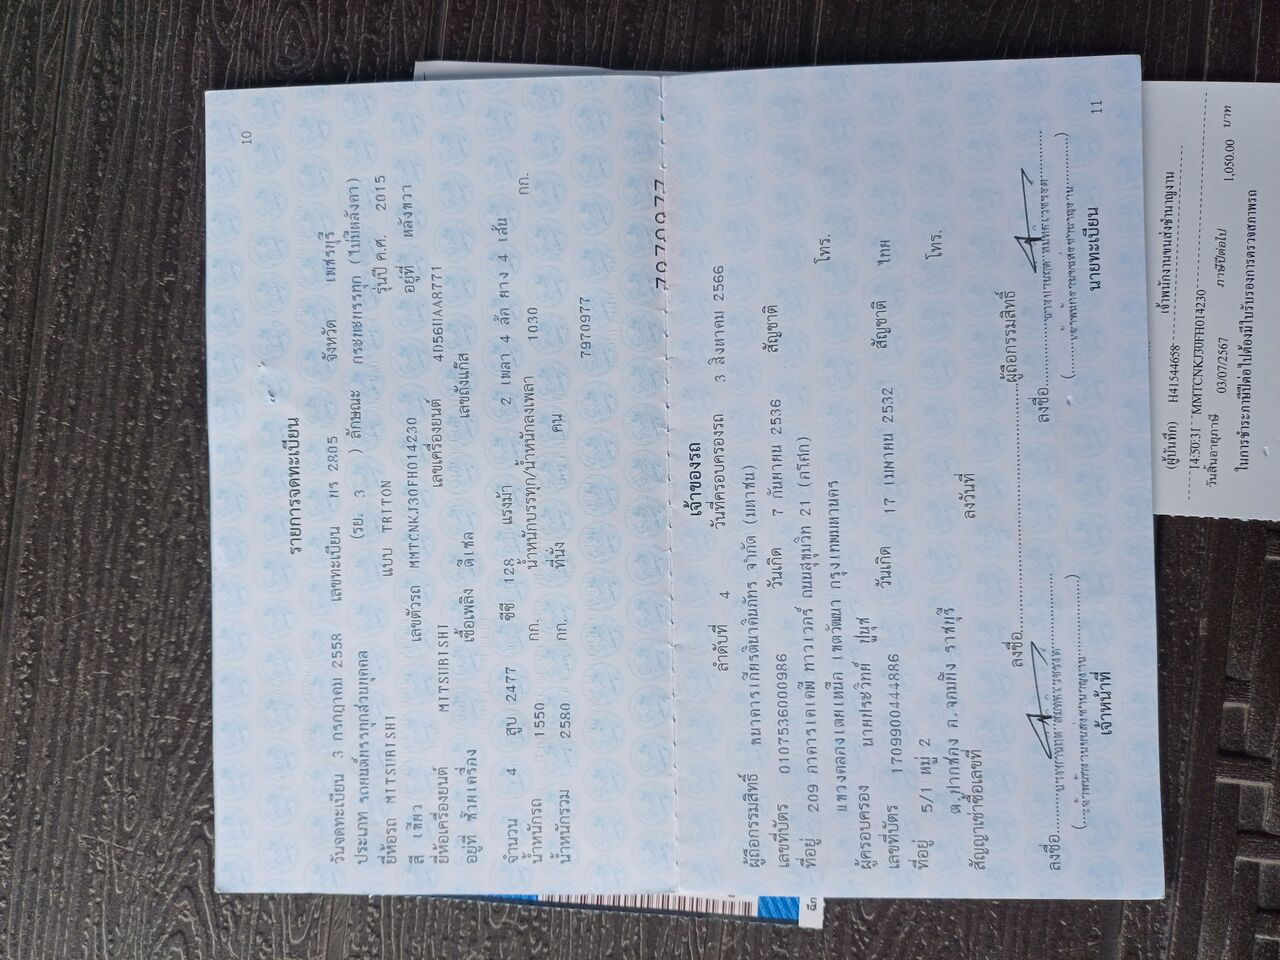 10
รายการจดทะเบียน
วันจดทะเบียน 3 กรกฎาคม 2558 เลขทะเบียน 2805 จังหวัด เพชรบุรี
ประเภท รถยนต์บรรทุกส่วนบุคคล (รย. 3 ) ลักษณะ กระบะบรรทุก (ไม่มีหลังคา)
ยี่ห้อรถ MITSUBISHI แบบ TRITON รุ่นปี ค.ศ. 2015
สี เขียว เลขตัวรถ MMTCNKJ30FH014230 อยู่ที่ หลังขวา
ยี่ห้อเครื่องยนต์ MITSUBISHI เลขเครื่องยนต์ 4D56UAAR771
อยู่ที่ ท้ายเครื่อง เชื้อเพลิง ดีเซล เลขถังแก๊ส
จำนวน 4 สูบ 2477 ซีซี 128 แรงม้า 2 เพลา 4 ล้อ ยาง 4 เส้น
น้ำหนักรถ 1550 กก. น้ำหนักบรรทุก/น้ำหนักลงเพลา 1030 กก.
น้ำหนักรวม 2580 กก. ที่นั่ง คน
7970977
7970977
เจ้าของรถ
ลำดับที่ 4 วันที่ครอบครองรถ 3 สิงหาคม 2566
ผู้ถือกรรมสิทธิ์ ธนาคารเกียรตินาคินภัทร จำกัด (มหาชน)
เลขที่บัตร 0107536000986 วันเกิด 7 กันยายน 2536 สัญชาติ
ที่อยู่ 209 อาคารเคเคพี ทาวเวอร์ ถนนสุขุมวิท 21 (อโศก) โทร.
แขวงคลองเตยเหนือ เขตวัฒนา กรุงเทพมหานคร
ผู้ครอบครอง นายประวิทย์ ปูนุช
เลขที่บัตร 1709900444886 วันเกิด 17 เมษายน 2532 สัญชาติ ไทย
ที่อยู่ 5/1 หมู่ 2 โทร.
ต.ปากช่อง อ.จอมบึง ราชบุรี
สัญญาเช่าซื้อเลขที่ ลงวันที่
ลงชื่อ ผู้ถือกรรมสิทธิ์
ลงชื่อ ลงชื่อ
(เจ้าพนักงานขนส่งชำนาญงาน) (เจ้าพนักงานขนส่งชำนาญงาน)
เจ้าหน้าที่ นายทะเบียน
11
(ผู้บันทึก) H41544658 เจ้าพนักงานขนส่งชำนาญงาน
14:50:31 MMTCNKJ30FH014230
วันสิ้นอายุภาษี 03/07/2567 ภาษีปีต่อไป 1,050.00 บาท
ในการชำระภาษีปีต่อไปต้องมีใบรับรองการตรวจสภาพรถ